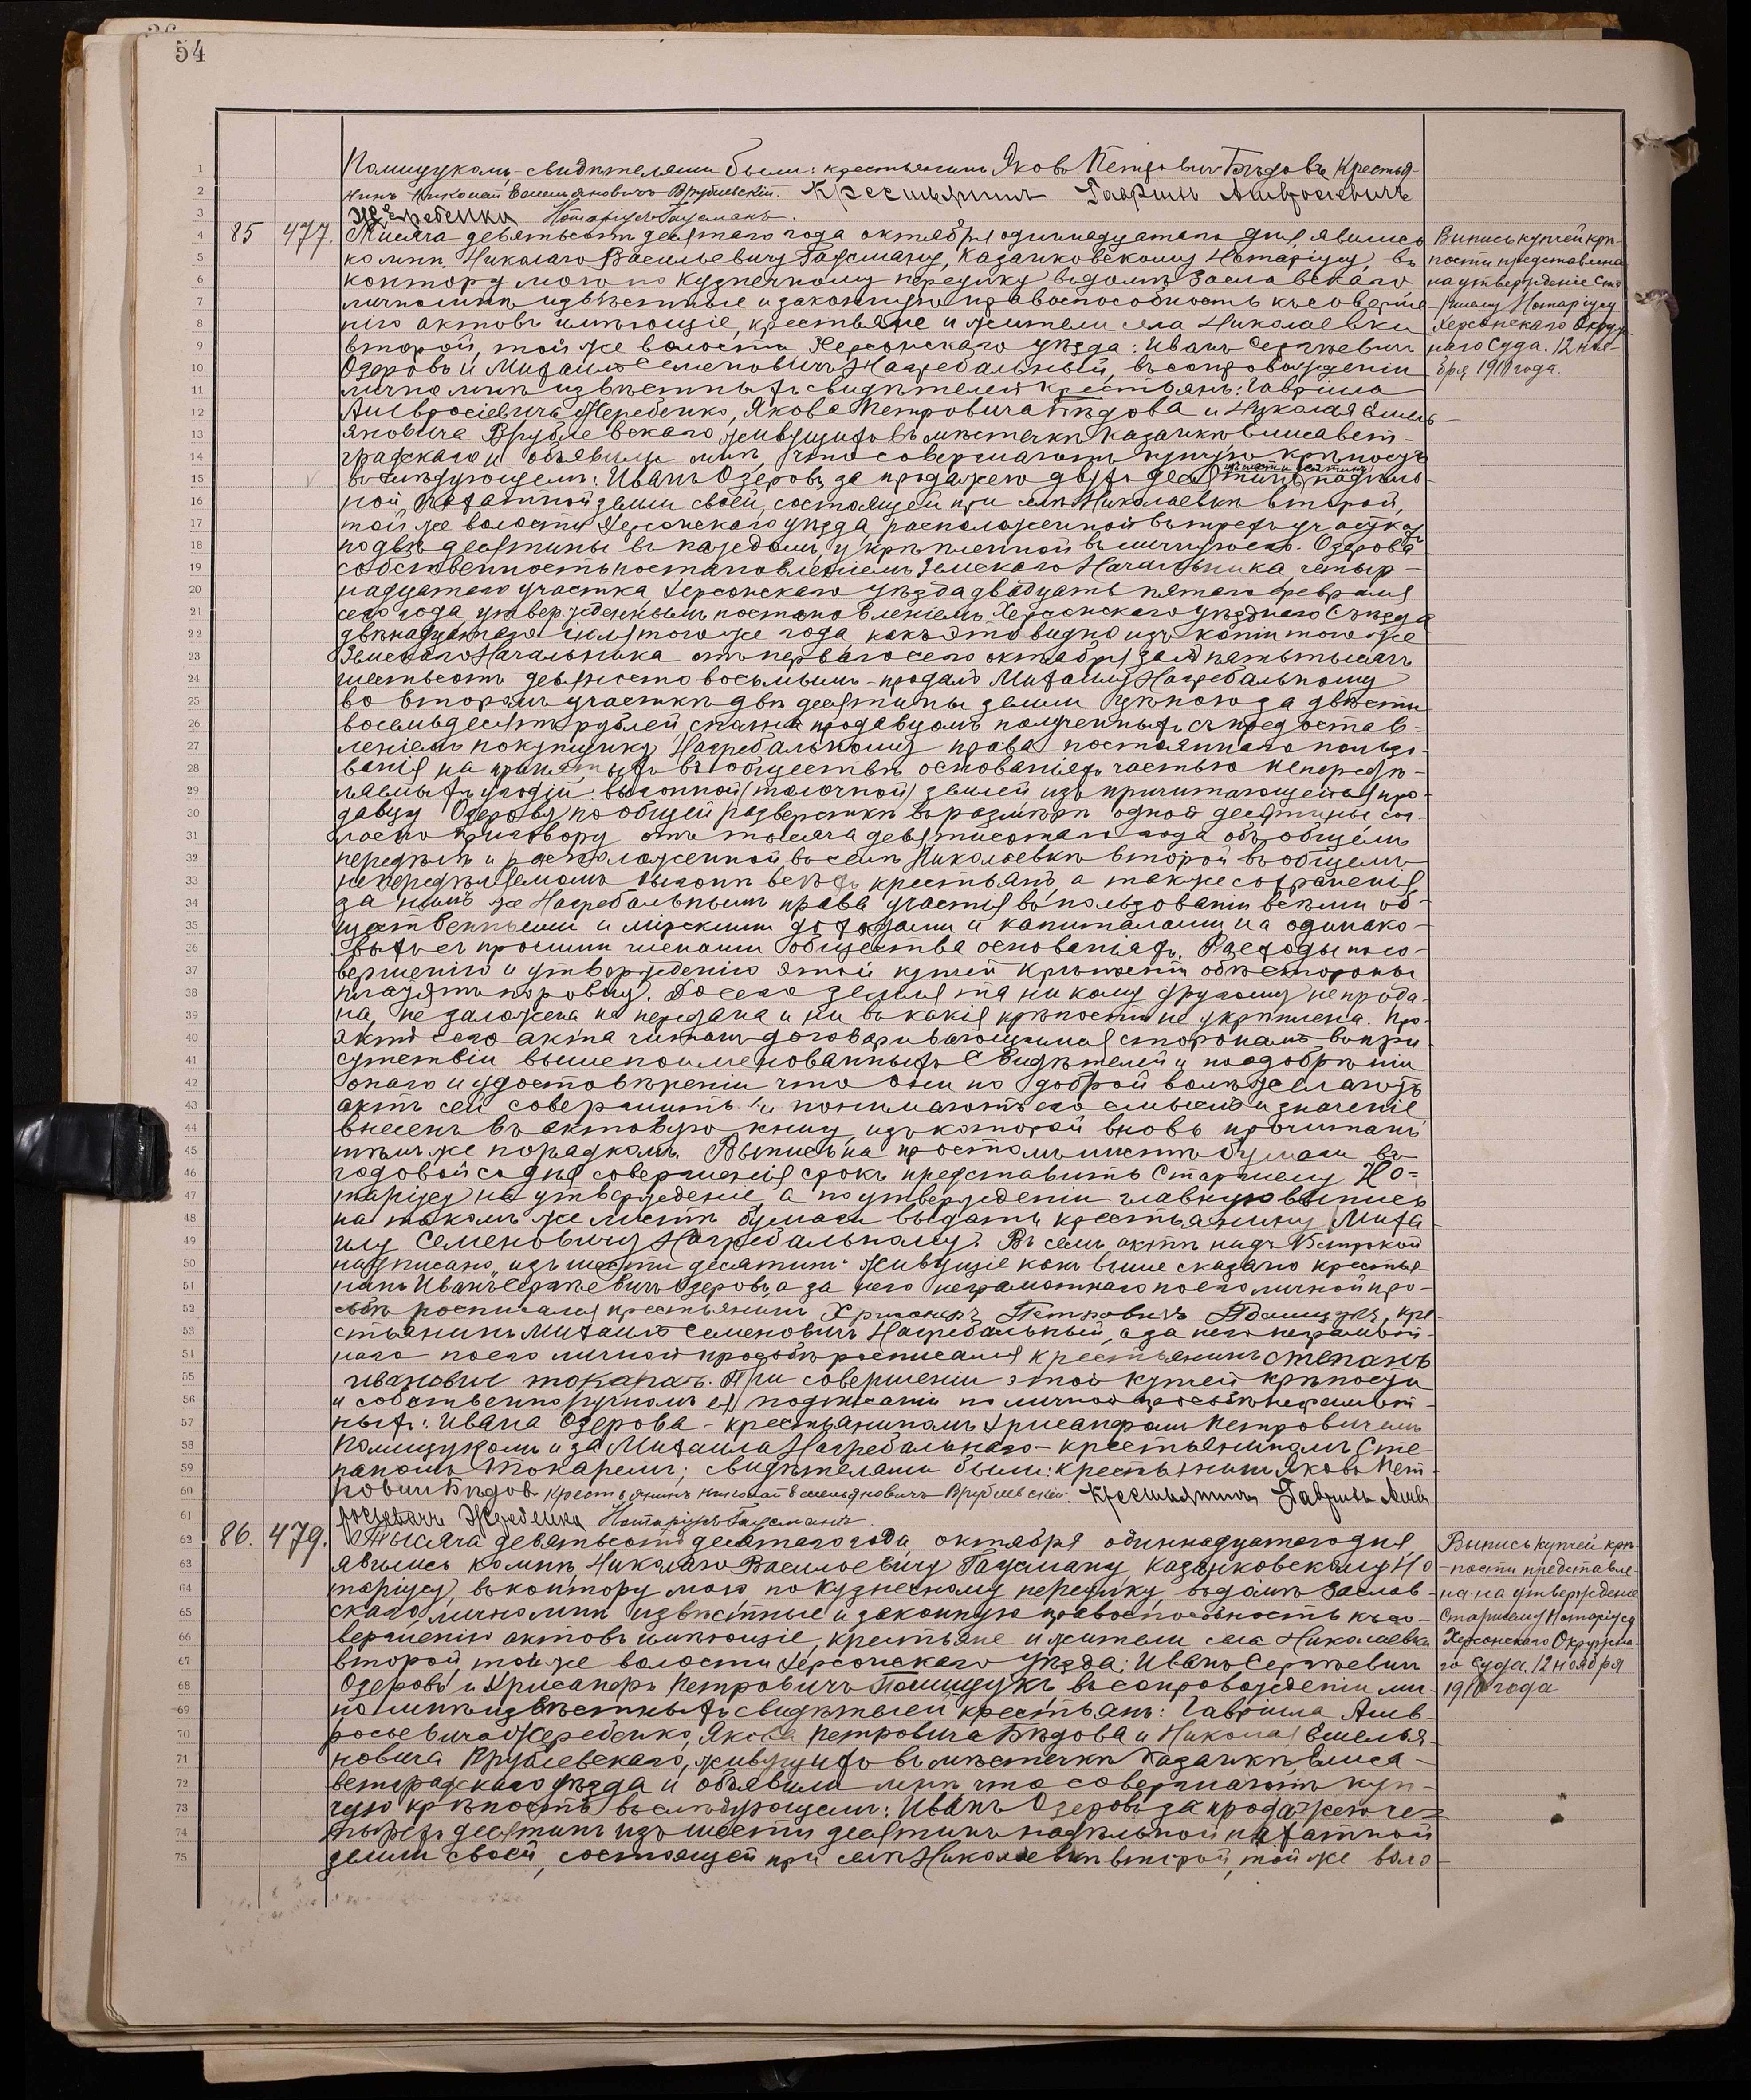 54
Полищукомъ, свидѣтелями были: крестьянинъ Яковъ Петровичъ Бѣдовъ, Крестья-
нинъ Николай Емельяновичъ Врублевскій. Крестьянинъ Гавріилъ Амвросіевичъ
Жеребенко Нотаріусъ Гаусманъ.
85 477. Тысяча девятьсотъ десятаго года октября одиннадцатаго дня, явились
ко мнѣ, Николаю Васильевичу Гаусману, Казанковскому Нотаріусу, въ
контору мою по Кузнечному переулку въ домѣ Заславскаго
лично мнѣ извѣстные и законную правоспособность къ соверше-
нію актовъ имѣющіе, крестьяне и жители села Николаевки
второй, той же волости Херсонскаго уѣзда: Иванъ Сергѣевичъ
Озеровъ и Михаилъ Семеновичъ Нагребальный, въ сопровожденіи
лично мнѣ извѣстныхъ свидѣтелей крестьянъ: Гавріила
Амвросіевича Жеребенко, Якова Петровича Бѣдова и Николая Емель-
яновича Врублевскаго, живущихъ въ мѣстечкѣ Казанкѣ Елисавет-
градскаго и объявили мнѣ, что совершаютъ купчую крѣпость
въ слѣдующемъ: Иванъ Озеровъ за продажею двухъ десятинъ изъ шести десятинъ надѣль-
ной пахатной земли своей, состоящей при селѣ Николаевкѣ второй,
той же волости Херсонскаго уѣзда, расположенной въ трехъ участкахъ
по двѣ десятины въ каждомъ, укрѣпленной въ личную его Озерова
собственность постановленіемъ Земскаго Начальника четыр-
надцатаго участка Херсонскаго уѣзда двадцать пятаго февраля
сего года, утвержденнымъ постановленіемъ Херсонскаго уѣзднаго Съѣзда
двѣнадцатаго іюля того же года, какъ это видно изъ копіи того же
Земскаго Начальника отъ перваго сего октября за № пять тысячъ
шестьсотъ девяносто восьмымъ - продалъ Михаилу Нагребальному
во второмъ участкѣ двѣ десятины земли цѣною за двѣсти
восемьдесятъ рублей, сполна продавцомъ полученныхъ съ предостав-
леніемъ покупщику Нагребальному права постояннаго пользо-
ванія на принятыхъ въ обществѣ основаніяхъ частью непередѣ-
ляемыхъ угодій: выгонной (толочной) землей изъ причитающейся про-
давцу Озерову по общей разверсткѣ въ размѣрѣ одной десятины со-
гласно приговору отъ тысяча девятисотаго года объ общемъ
передѣлѣ и расположенной въ селѣ Николаевкѣ второй въ общемъ
непередѣляемомъ выгонѣ всѣхъ крестьянъ, а также сохраненія
за нимъ же Нагребальнымъ права участія въ пользованіи всѣми об-
щественными и мірскими доходами и капиталами на одинако-
выхъ съ прочими членами общества основаніяхъ. Расходы по со-
вершенію и утвержденію этой купчей крѣпости обѣ стороны
платятъ поровну. До сего земля та никому другому не прода-
на, не заложена, не передана и ни въ какія крѣпости не укрѣплена. Про-
ектъ сего акта читанъ договаривающимся сторонамъ въ при-
сутствіи вышепоименованныхъ свидѣтелей и по одобреніи
онаго и удостовѣреніи что они по доброй волѣ желаютъ
актъ сей совершить и понимаютъ его смыслъ и значеніе
внесенъ въ актовую книгу, изъ которой вновь прочитанъ
тѣмъ же порядкомъ. Выпись на простомъ листѣ бумаги въ
годовой со дня совершенія срокъ представить Старшему Но-
таріусу на утвержденіе, а по утвержденіи главную выпись
на такомъ же листѣ бумаги выдать крестьянину Миха-
илу Семеновичу Нагребальному. Въ семъ актѣ надъ 15 строкой
надписано „изъ шести десятинъ" Живущіе какъ выше сказано крестья-
нинъ Иванъ Сергѣевичъ Озеровъ, а за него неграмотнаго по его личной про-
сьбѣ росписался крестьянинъ Хрисанфъ Петровичъ Полищукъ, кре-
стьянинъ Михаилъ Семеновичъ Нагребальный, а за него неграмот-
наго по его личной просьбѣ росписался крестьянинъ Степанъ
Ивановичъ Токарь. При совершеніи этой купчей крѣпости
и собственноручномъ ея подписаніи по личной просьбѣ неграмот-
ныхъ: Ивана Озерова - крестьяниномъ Хрисанфомъ Петровичемъ
Полищукомъ и за Михаила Нагребальнаго - крестьяниномъ Сте-
паномъ Токаремъ; свидѣтелями были: Крестьянинъ Яковъ Пет-
ровичъ Бѣдовъ Крестьянинъ Николай Емельяновичъ Врублевскій. Крестьянинъ Гавріилъ Амв
росіевичъ Жеребенко Нотаріусъ Гаусманъ.
86. 479. Тысяча девятьсотъ десятаго года, октября одиннадцатаго дня,
явились ко мнѣ, Николаю Васильевичу Гаусману, Казанковскому Но-
таріусу, въ контору мою по Кузнечному переулку, въ домѣ Заслав-
скаго, лично мнѣ извѣстные и законную правоспособность къ со-
вершенію актовъ имѣющіе, крестьяне и жители села Николаевки
второй, той же волости Херсонскаго уѣзда: Иванъ Сергѣевичъ
Озеровъ и Хрисанфъ Петровичъ Полищукъ, въ сопровожденіи лич-
но мнѣ извѣстныхъ свидѣтелей крестьянъ: Гавріила Амв-
росьевича Жеребенко, Якова Петровича Бѣдова и Николая Емелья-
новича Врублевскаго, живущихъ въ мѣстечкѣ Казанкѣ, Елиса-
ветградскаго уѣзда и объявили мнѣ что совершаютъ куп-
чую крѣпость въ слѣдующемъ: Иванъ Озеровъ за продажею че-
тырехъ десятинъ изъ шести десятинъ надѣльной пахатной
земли своей, состоящей при селѣ Николаевкѣ второй, той же воло-
Выпись купчей крѣ-
пости представлена
на утвержденіе Стар
шему Нотаріусу
Херсонскаго Окруж-
наго Суда. 12 ноя-
бря 1910 года.
Выпись купчей крѣ-
пости представле-
на на утвержденіе
Старшему Нотаріусу
Херсонскаго Окружна-
го Суда. 12 ноября
1910 года